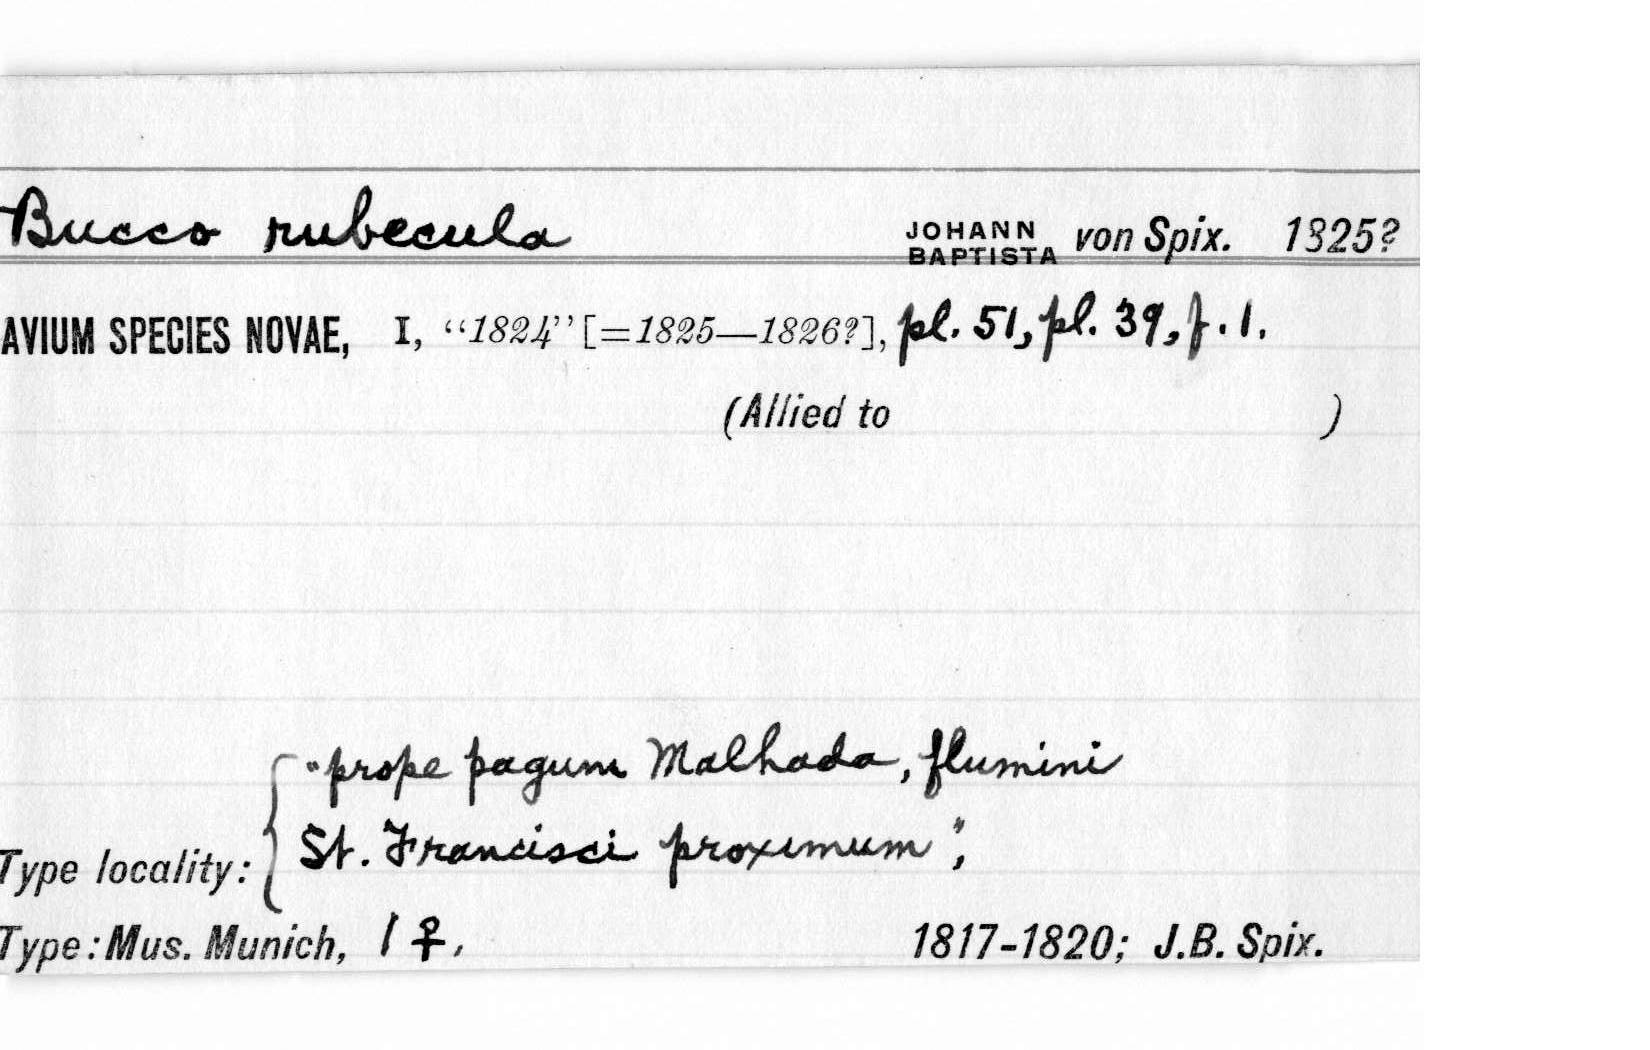 Bucco rubecula JOHANN BAPTISTA von Spix. 1825?
AVIUM SPECIES NOVAE, I, “1824” [=1825—1826?], pl. 51, pl. 39, f. 1.
(Allied to )
"prope pagum Malhada, flumini
St. Francisci proximum",
Type locality:
Type: Mus. Munich, 1 ♀, 1817-1820; J.B. Spix.